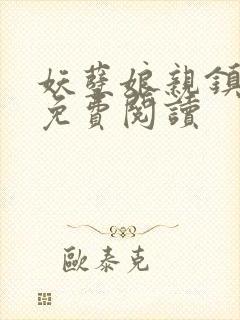 妖孽娘親鎮
免費閱讀
歐泰克